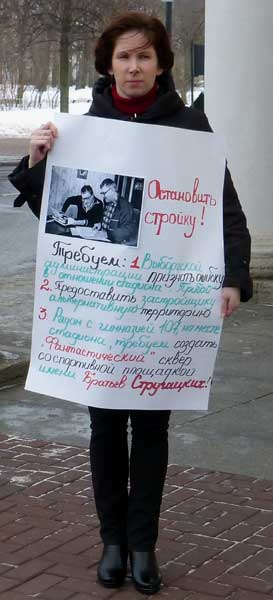 Остановить
стройку!
Требуем: 1. Выборгской
администрации признать ошибку
в отношении стадиона "Прибой"
2. Предоставить застройщику
альтернативную территорию
3. Рядом с гимназией 107, на месте
стадиона, требуем создать
"Фантастический" сквер
со спортивной площадкой
имени Братьев Стругацких!